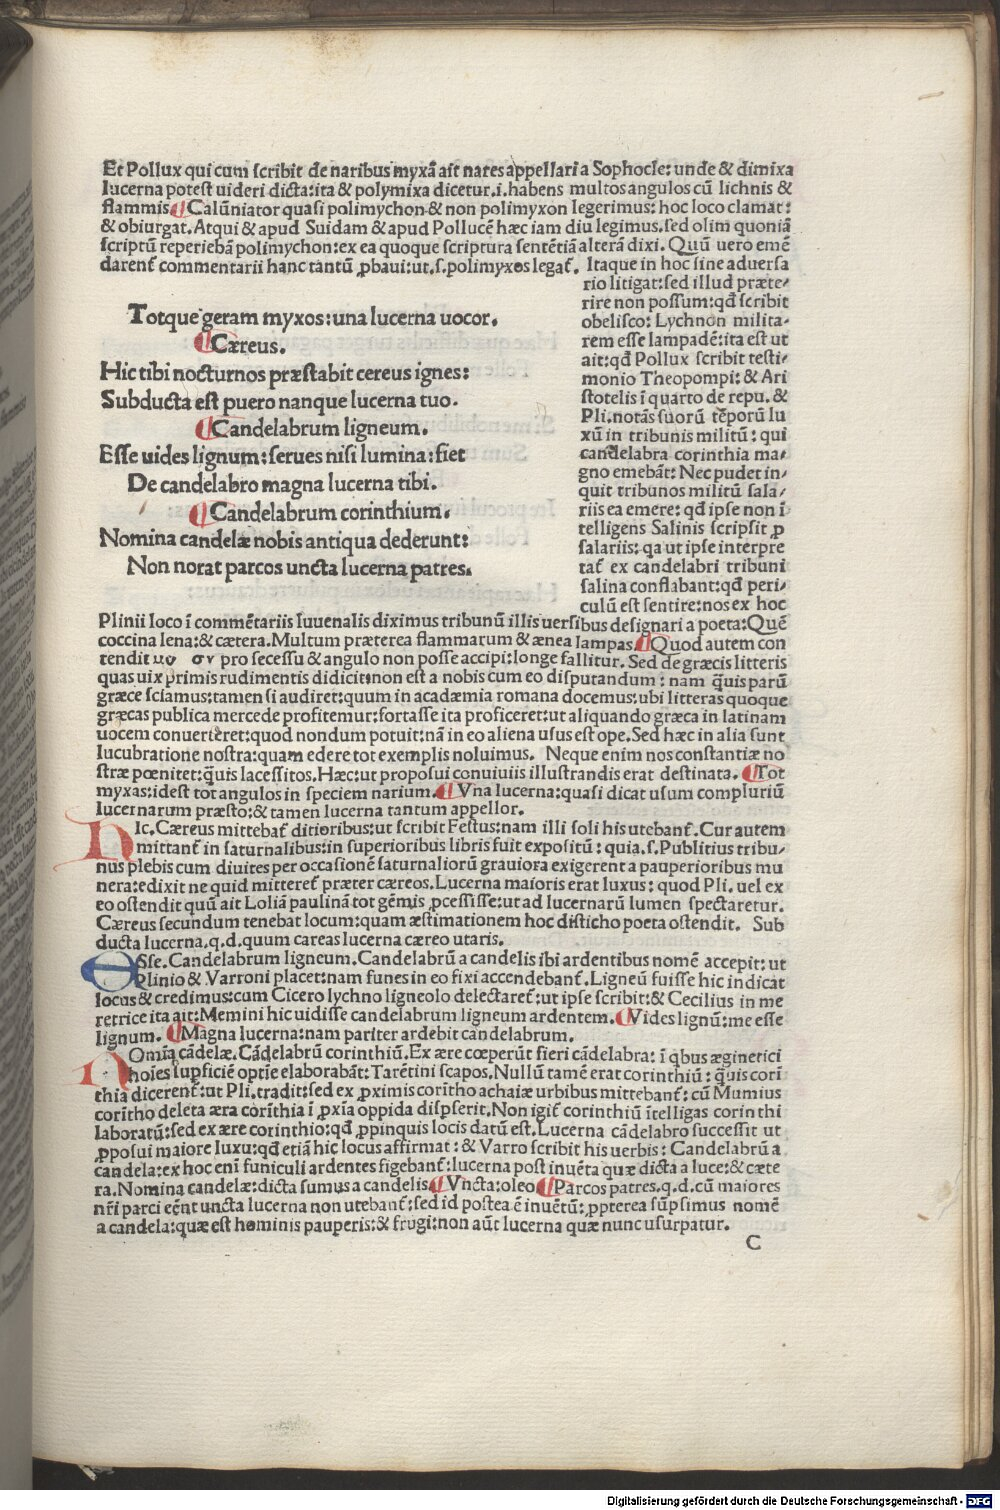 Et Pollux qui cum scribit de naribus myxā ait nares appellari a Sophocle: unde & dimixa
lucerna potest uideri dicta: ita & polymixa dicetur. i. habens multos angulos cū lichnis &
flammis. ¶ Calūniator quasi polimychon & non polimyxon legerimus: hoc loco clamat:
& obiurgat. Atqui & apud Suidam & apud Pollucē hæc iam diu legimus. sed olim quoniā
scriptū reperiebā polimychon: ex ea quoque scriptura sentētiā alterā dixi. Quū uero emē
darent̄ commentarii hanc tantū ꝓbaui: ut. s. polimyxos legat̄. Itaque in hoc sine aduersa
rio litigat: sed illud præte/
rire non possum: qđ scribit
obelisco: Lychnon milita-
rem esse lampadē: ita est ut
ait: qđ Pollux scribit testi/
monio Theopompi: & Ari
stotelis ī quarto de repu. &
Pli. notās suorū tēporū lu
xū in tribunis militū: qui
candelabra corinthia ma-
gno emebāt: Nec pudet in-
quit tribunos militū sala/
riis ea emere: qđ ipse non ī
telligens Salinis scripsit ꝓ
salariis: qa ut ipse interpre
tat̄ ex candelabri tribuni
salina conflabant: qđ peri/
culū est sentire: nos ex hoc
Totque geram myxos: una lucerna uocor.
¶ Cæreus.
Hic tibi nocturnos præstabit cereus ignes:
Subducta est puero nanque lucerna tuo.
¶ Candelabrum ligneum.
Esse uides lignum: serues nisi lumina: fiet
De candelabro magna lucerna tibi.
¶ Candelabrum corinthium.
Nomina candelæ nobis antiqua dederunt:
Non norat parcos uncta lucerna patres.
Plinii loco ī commētariis Iuuenalis diximus tribunū illis uersibus designari a poeta: Quē
coccina lena: & cætera. Multum præterea flammarum & ænea lampas. ¶ Quod autem con
tendit μυ συ pro secessu & angulo non posse accipi: longe fallitur. Sed de græcis litteris
quas uix primis rudimentis didicit: non est a nobis cum eo disputandum: nam q̄uis parū
græce sciamus: tamen si audiret: quum in acadæmia romana docemus: ubi litteras quoque
græcas publica mercede profitemur: fortasse ita proficeret: ut aliquando græca in latinam
uocem conuerteret: quod nondum potuit: nā in eo aliena usus est ope. Sed hæc in alia sunt
lucubratione nostra: quam edere tot exemplis noluimus. Neque enim nos constantiæ no
stræ pœnitet: q̄uis lacessitos. Hæc: ut proposui conuiuiis illustrandis erat destinata. ¶ Tot
myxas: idest tot angulos in speciem narium. ¶ Vna lucerna: quasi dicat usum compluriū
lucernarum præsto: & tamen lucerna tantum appellor.
HIc. Cæreus mittebat̄ ditioribus: ut scribit Festus: nam illi soli his utebant̄. Cur autem
mittant̄ in saturnalibus: in superioribus libris fuit expositū: quia. s. Publitius tribu/
nus plebis cum diuites per occasionē saturnaliorū grauiora exigerent a pauperioribus mu
nera: edixit ne quid mitteret̄ præter cæreos. Lucerna maioris erat luxus: quod Pli. uel ex
eo ostendit quū ait Loliā paulinā tot gēmis ꝓcessisse: ut ad lucernarū lumen spectaretur.
Cæreus secundum tenebat locum: quam æstimationem hoc disticho poeta ostendit. Sub
ducta lucerna. q. d. quum careas lucerna cæreo utaris.
ESse. Candelabrum ligneum. Candelabrū a candelis ibi ardentibus nomē accepit: ut
Plinio & Varroni placet: nam funes in eo fixi accendebant̄. Ligneū fuisse hic indicat
locus & credimus: cum Cicero lychno ligneolo delectaret̄: ut ipse scribit: & Cecilius in me
retrice ita ait: Memini hic uidisse candelabrum ligneum ardentem. ¶ Vides lignū: me esse
lignum. ¶ Magna lucerna: nam pariter ardebit candelabrum.
NOmīa cādelæ. Cādelabrū corinthiū. Ex ære cœperūt fieri cādelabra: ī qbus æginetici
hoīes supficiē optīe elaborabāt: Tarētini scapos. Nullū tamē erat corinthiū: q̄uis corī
thia dicerent̄: ut Pli. tradit: sed ex ꝓximis corītho achaiæ urbibus mittebant̄: cū Mumius
corītho deleta æra corīthia ī ꝓxīa oppida disꝑserit. Non igit̄ corinthiū ītelligas corinthi
laboratū: sed ex ære corinthio: qđ ꝓpinquis locis datū est. Lucerna cādelabro successit ut
ꝓposui maiore luxu: qđ etiā hic locus affirmat: & Varro scribit his uerbis: Candelabrū a
candela: ex hoc enī funiculi ardentes figebant̄: lucerna post inuēta quæ dicta a luce: & cæte
ra. Nomina candelæ: dicta sumus a candelis. ¶ Vncta: oleo. ¶ Parcos patres. q. d. cū maiores
nr̄i parci eēnt uncta lucerna non utebant̄: sed id postea ē inuētū: ꝓpterea sūpsimus nomē
a candela: quæ est hominis pauperis: & frugi: non aūt lucerna quæ nunc usurpatur.
C
Digitalisierung gefördert durch die Deutsche Forschungsgemeinschaft - DFG